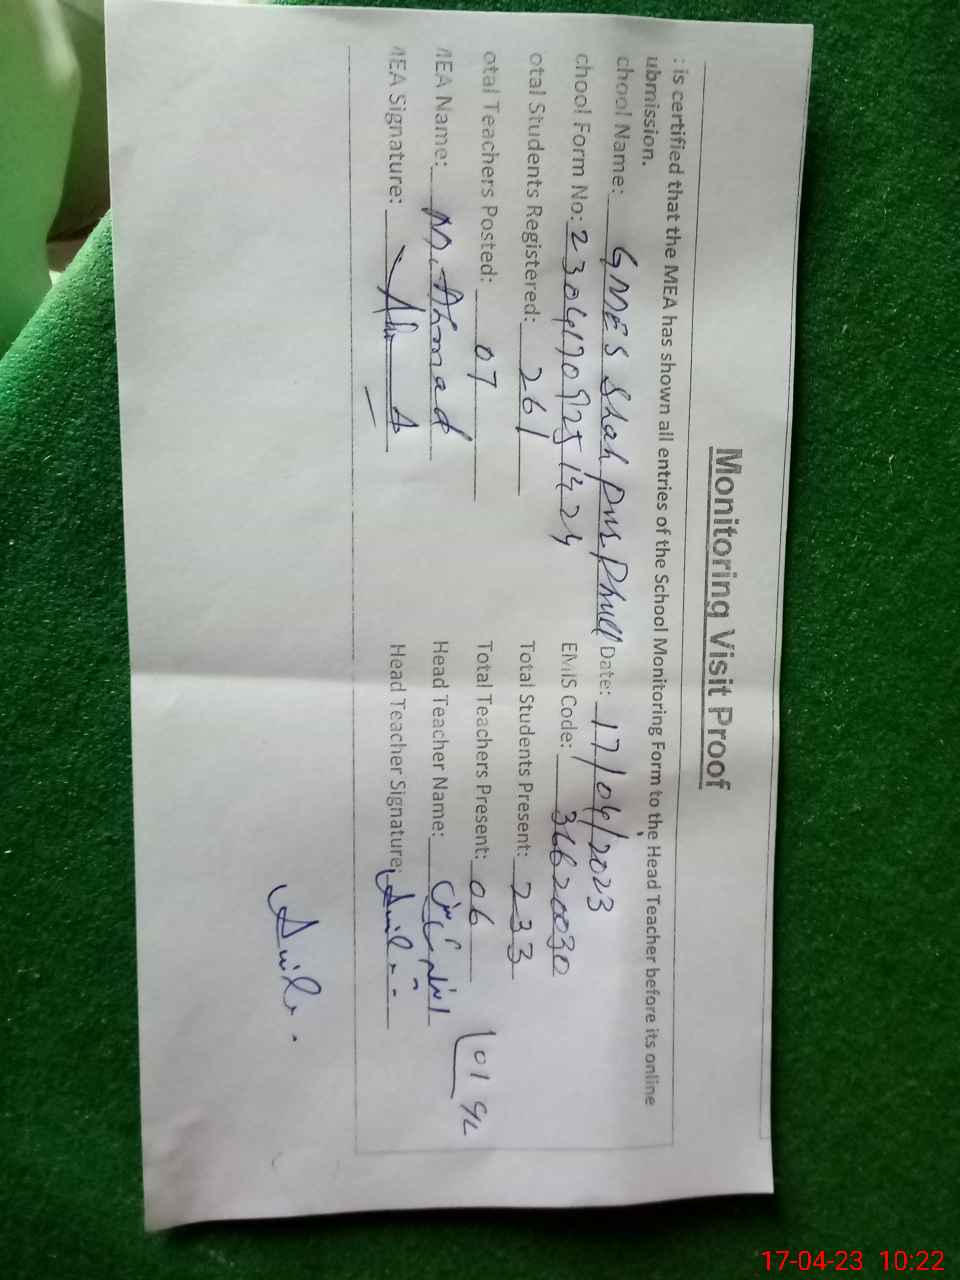 Monitoring Visit Proof
: is certified that the MEA has shown all entries of the School Monitoring Form to the Head Teacher before its online
ubmission.
chool Name: GMES Shah Pur Phull Date: 17/04/2023
chool Form No: 23041709251424 EMIS Code: 36620030
otal Students Registered: 261 Total Students Present: 233
otal Teachers Posted: 07 Total Teachers Present: 06
MEA Name: M. Ahmad Head Teacher Name:
MEA Signature: Head Teacher Signature:
17-04-23 10:22